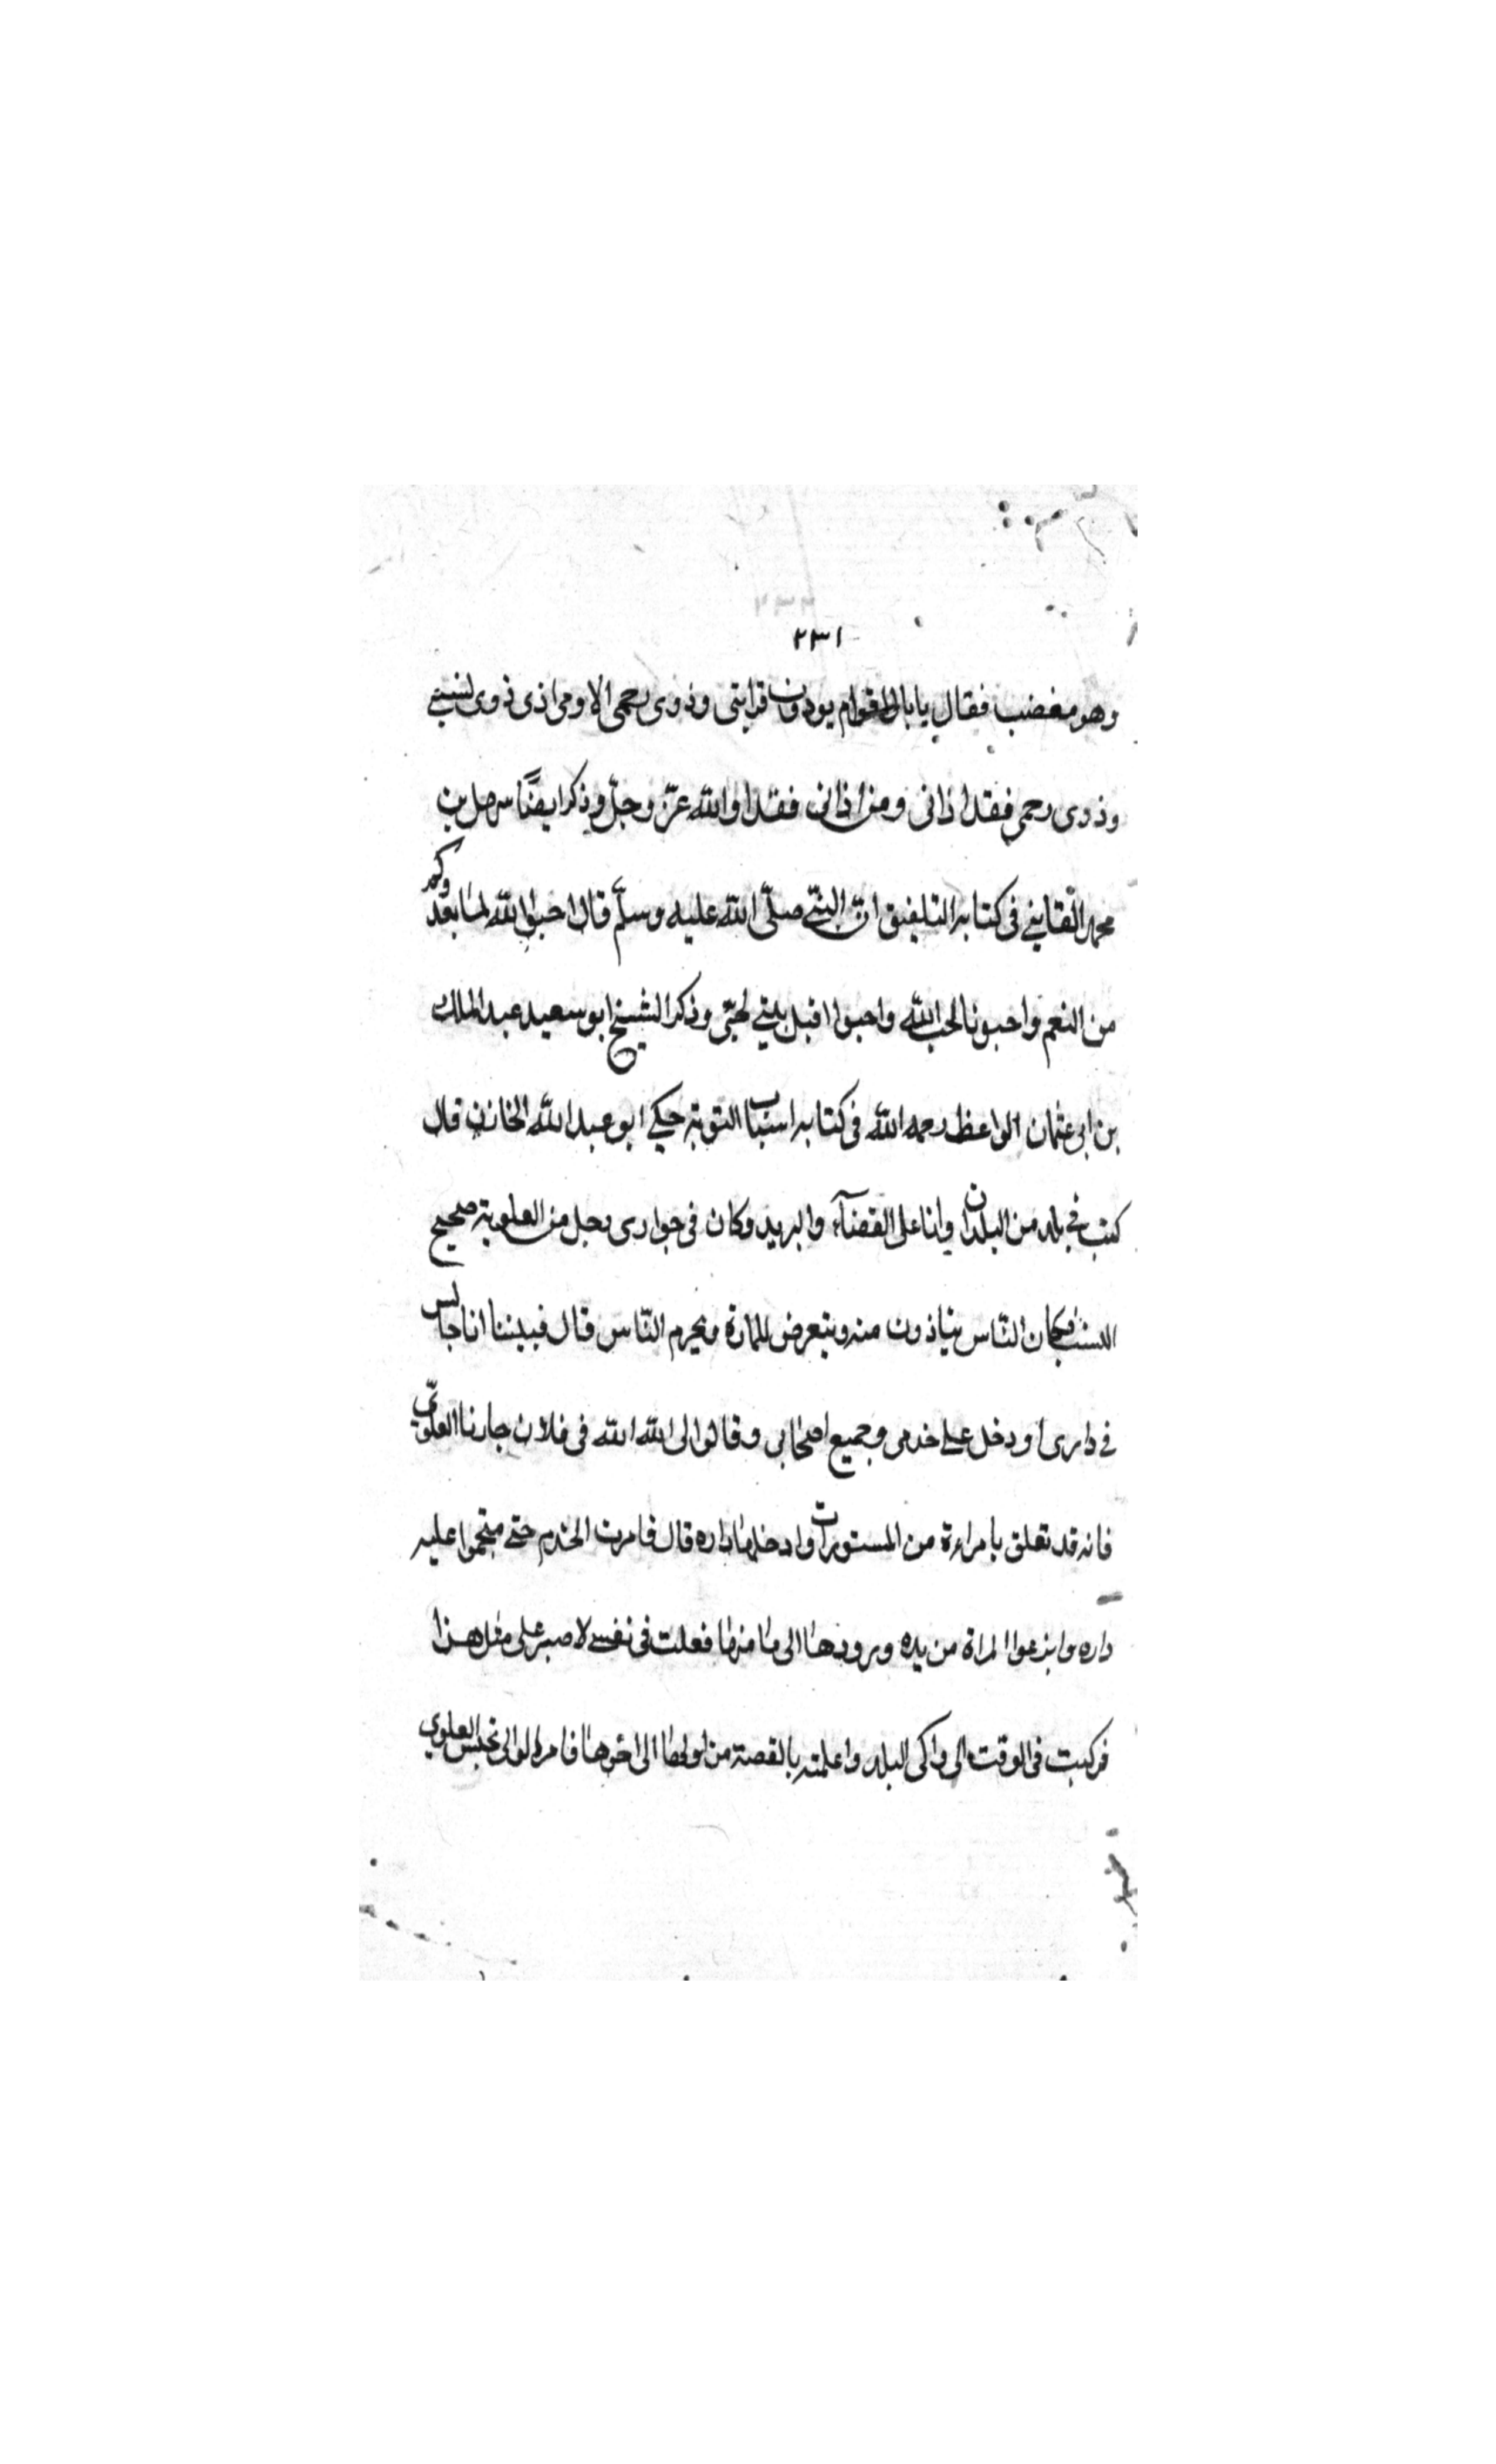 ٢٣١
وهو مغضب فقال يا بال اقوام يودون قرابتى وذوى رحمى الا ومن اذى ذوى نسبى
وذوى رحمى فقد اذانى ومن اذانى فقد اوالله عزّ وجلّ وذكر ايضًا سهل بن
محمد القاينى فى كتابه التلفيق ان النبىّ صلّى الله عليه وسلّم قال احبوا الله لما بعدوكم
من النعم واحبونا لحب الله واحبوا اهل بيتى لحبّى وذكر الشيخ ابو سعيد عبد الملك
بن ابى عثمان الواعظ رحمه الله فى كتابه اسباب التوبة حكى ابو عبد الله الخازن قال
كنت فى بلد من البلدان وانا على القضآء والبريد وكان فى جوارى رجل من العلوية صحيح
النسب فكان الناس يتاذون منه ويتعرض للمارة ويحرم النّاس قال فبيننا انا جالس
فى دارى اودخل على خدمى وجميع اصحابى وقالوا لى الله الله فى فلان جارنا العلوىّ
فانه قد تعلق بامراءة من المستورات وادخلها داره قال فامرت الخدم حتى هجموا عليه
داره وانزعوا المراة من يده وبردها الى مامنها فعلت فى نفسى لا صبر على مثل هذا
فركبت فى الوقت الى واكى البلد واعلمته بالقصة من اولها الى اخرها فامر الوالى بحبس العلوى